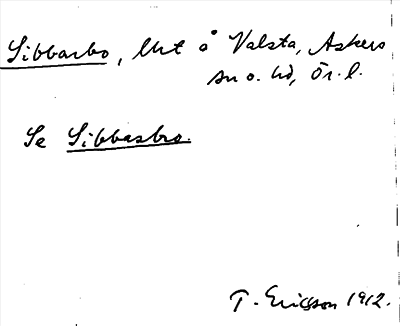 Sibbarbo, lht å Valsta, Askers
sn o. hd, Ör. l.
Se Sibbasbro.
T. Ericsson 1912.